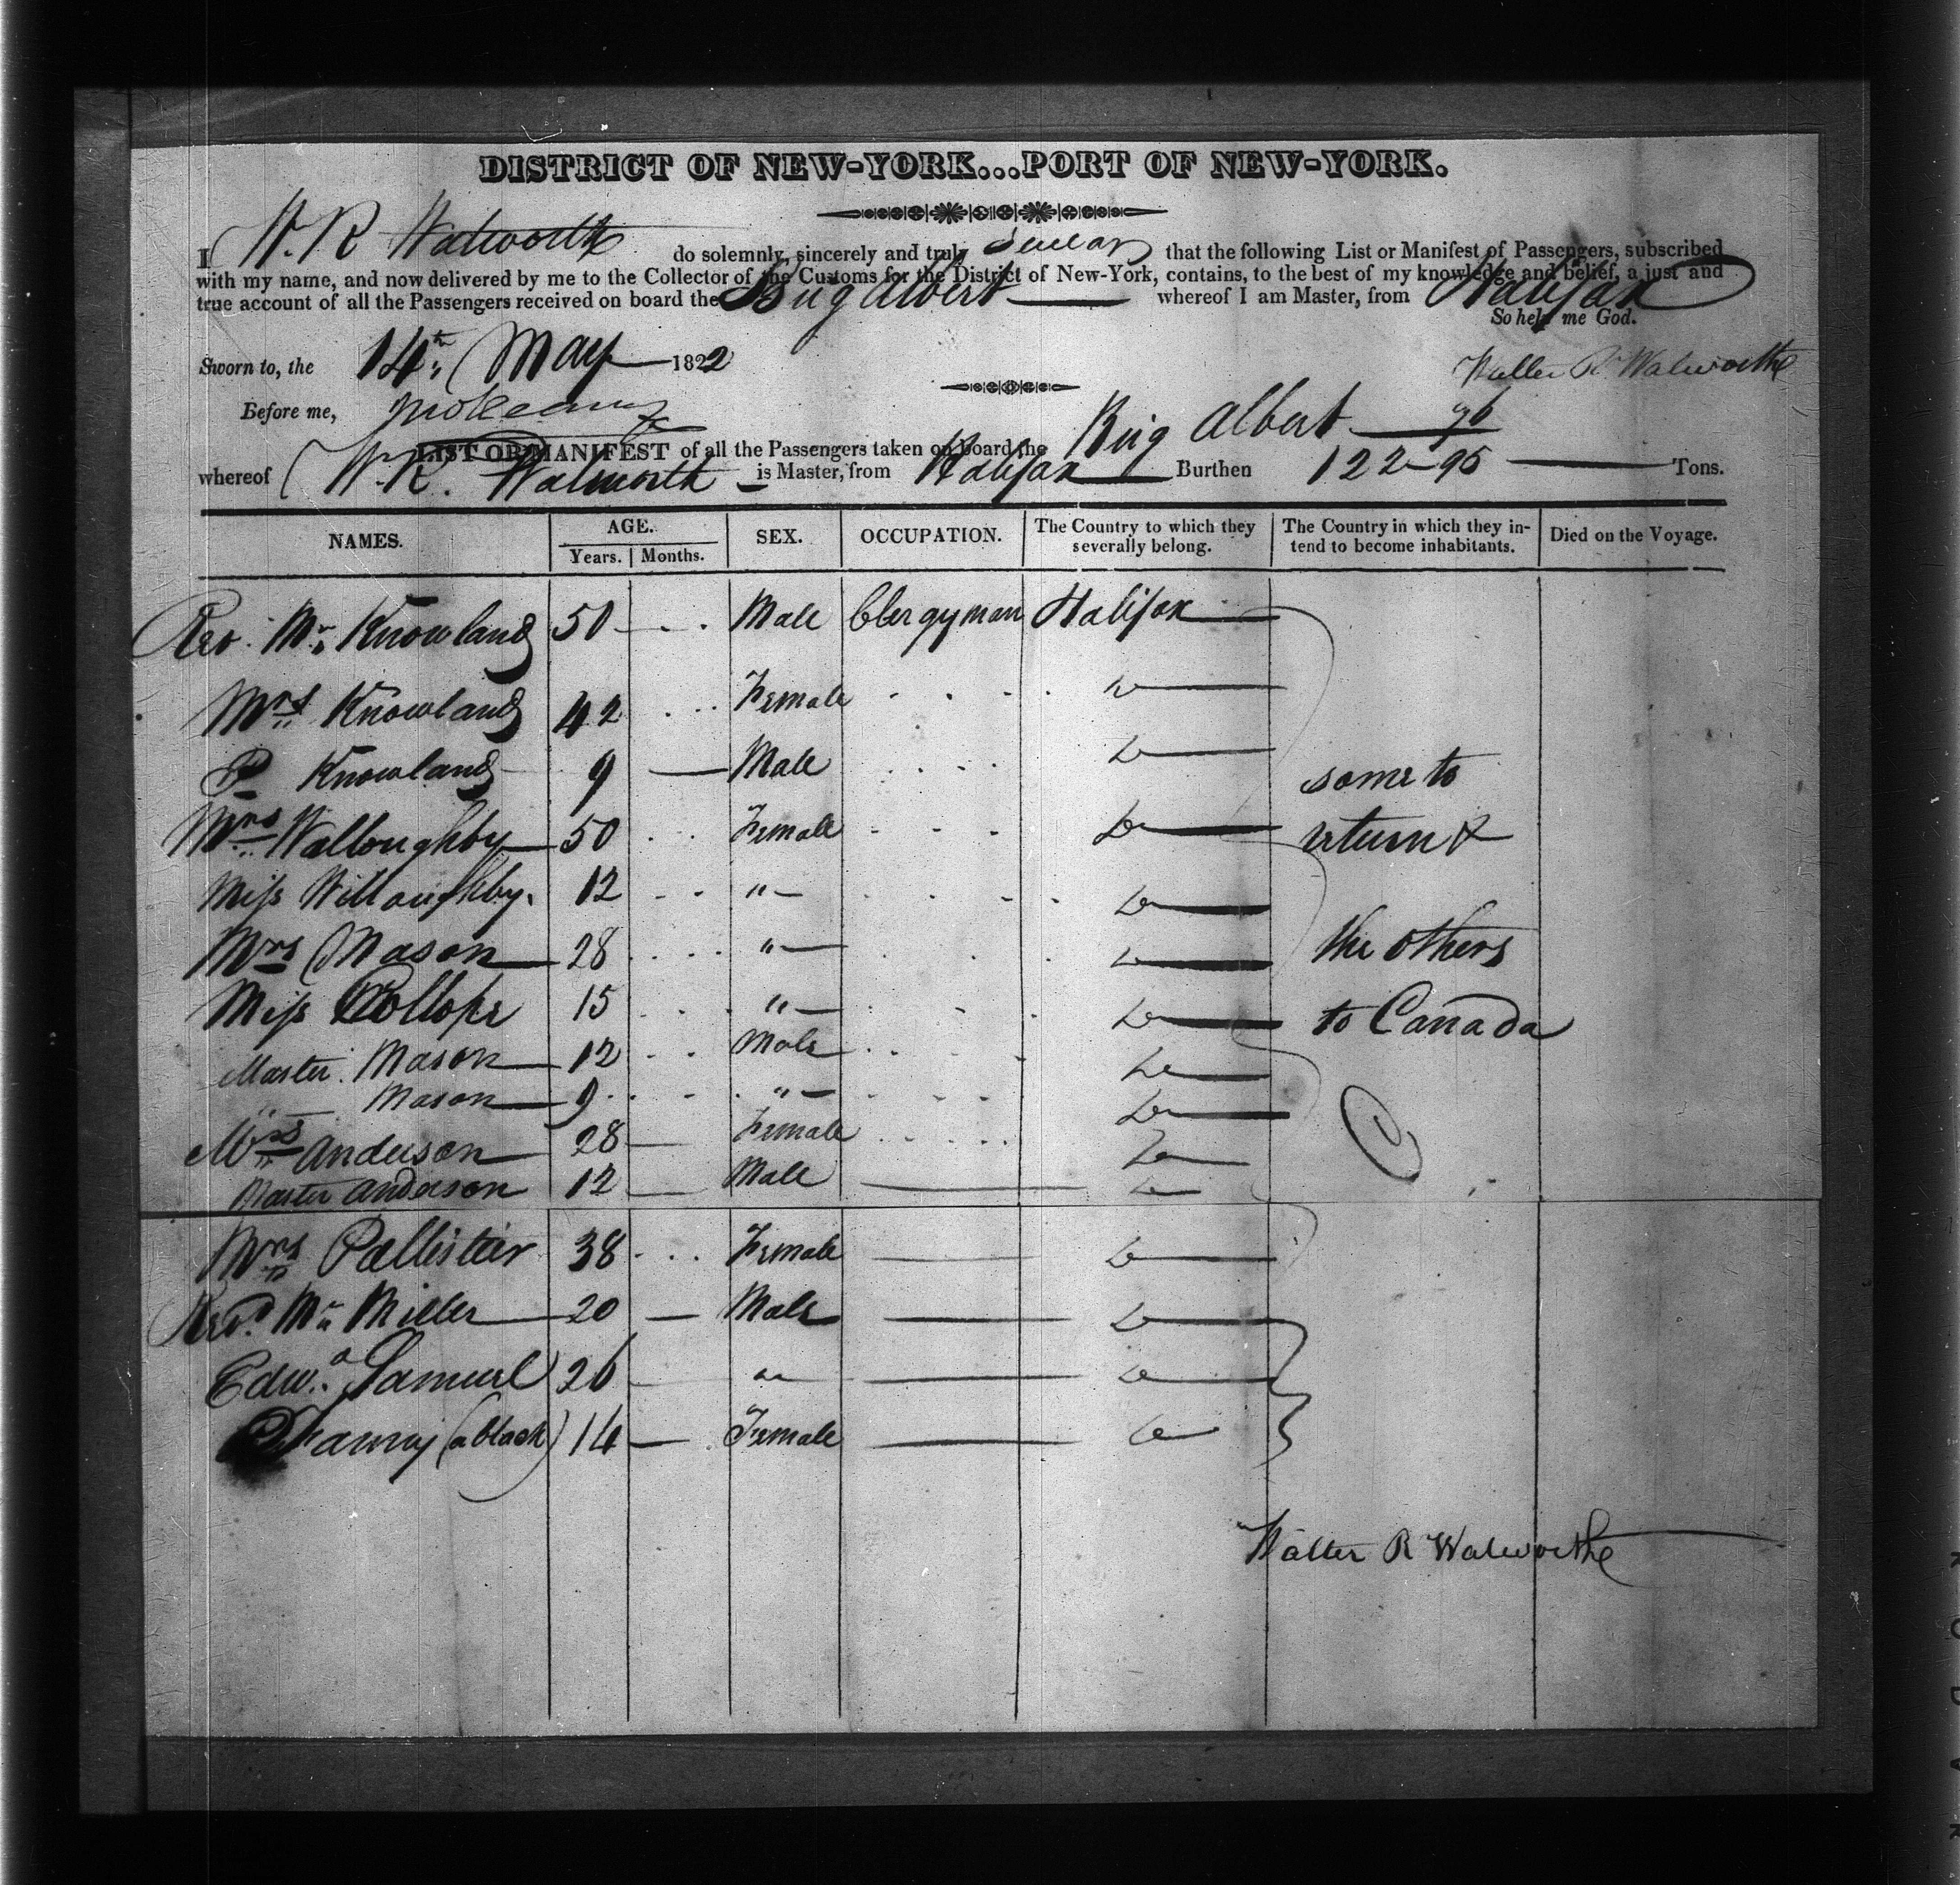 DISTRICT OF NEW-YORK...PORT OF NEW-YORK.
I W. R Walworth do solemnly, sincerely and truly swear that the following List or Manifest of Passengers, subscribed
with my name, and now delivered by me to the Collector of the Customs for the District of New-York, contains, to the best of my knowledge and belief, a just and
true account of all the Passengers received on board the Brig Albert whereof I am Master, from Halifax
So help me God.
Sworn to, the 14th May 1822
Walter R Walworth
Before me,
LIST OR MANIFEST of all the Passengers taken on board the Brig Albert
whereof W. R. Walworth is Master, from Halifax Burthen 122-95 Tons.
96
NAMES. AGE. SEX. OCCUPATION. The Country to which they severally belong. The Country in which they intend to become inhabitants. Died on the Voyage.
Years. Months.
Rev. Mr. Knowland 50 Male Clergyman Halifax
Mrs Knowland 42 Female Do
P Knowland 9 Male Do
some to
Mrs Walloughby 50 Female Do
return &
Miss Willoughby. 12 " Do
Mrs Mason 28 " Do
the others
Miss Collope 15 " Do
to Canada
Master Mason 12 Male Do
" Mason 9 " Do
Mrs Anderson 28 Female Do
Master Anderson 12 Male Do
Mrs Pallistier 38 Female Do
Revd. Mr Miller 20 Male Do
Edwd. Samuel 26 " Do
Fanny (a black) 14 Female Do
Walter R Walworth